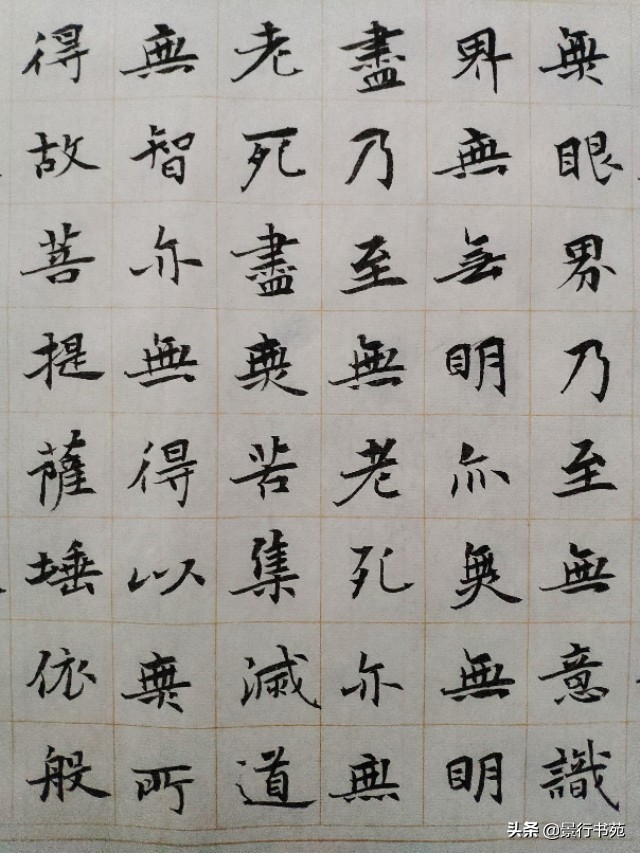 無眼界乃至無意識
界無無明亦無無明
盡乃至無老死亦無
老死盡無苦集滅道
無智亦無得以無所
得故菩提薩埵依般
头条 @景行书苑